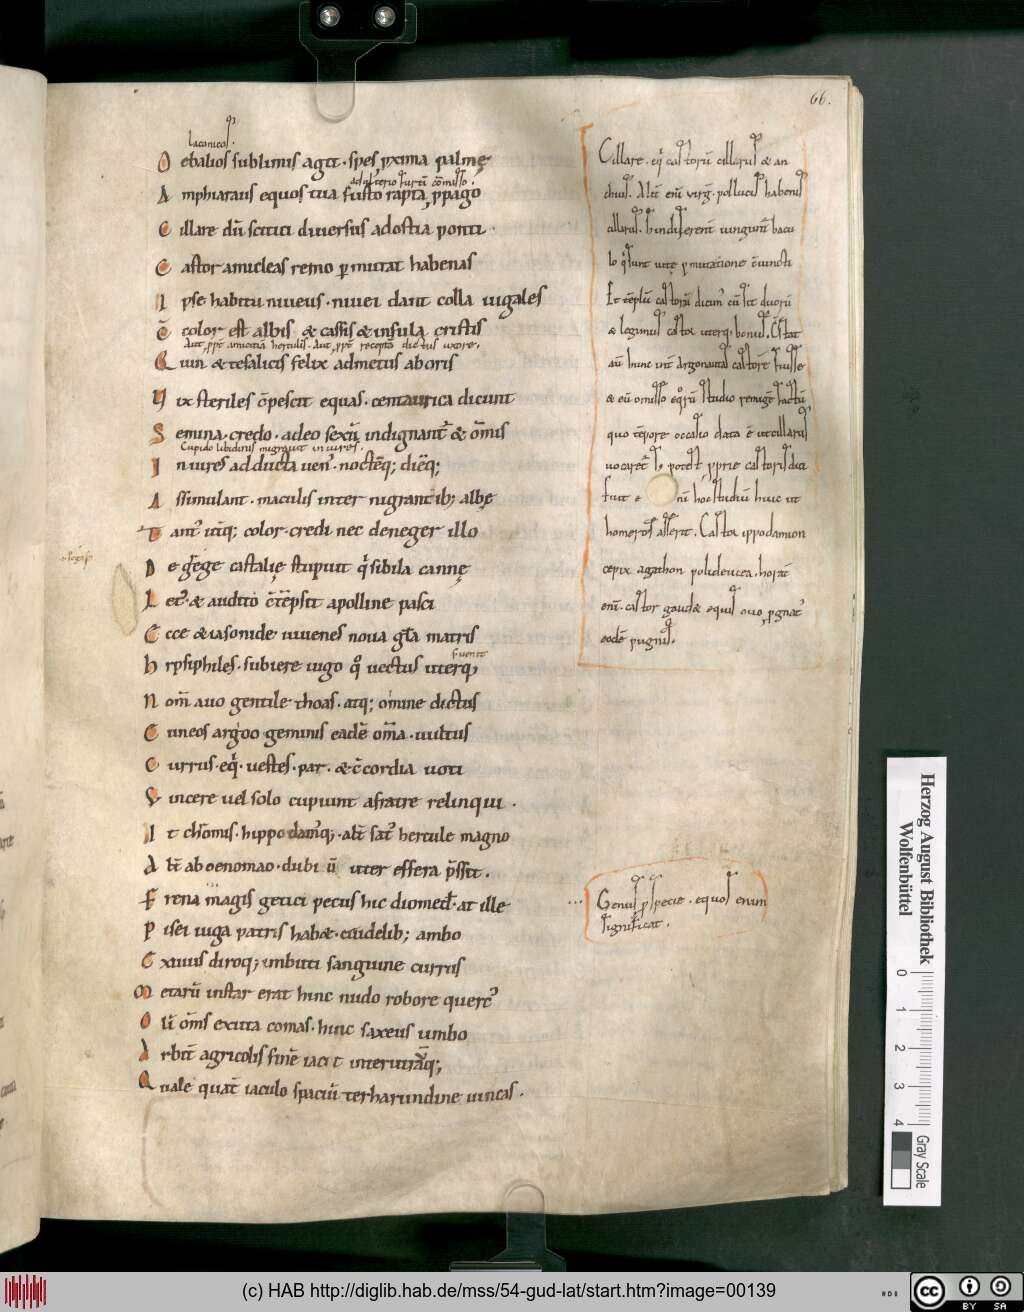 66.
laconicos.
O ebalios sublimis agit. spes ꝓxima palmę
adulterio furtū cōmisso.
A mphiaraus equos tua furto rapta, ꝓpago
C illare dū scitici diuersus ad ostia ponti.
C astor amicleas remo ꝑmutat habenas
I pse habitu niueus. niuei dant colla iugales
ē color est albis & cassis & insula cristis
Aut ꝓpt̄ amicitia herculis. Aut ꝓpt̄ recepta dictus uxore.
Q uin & tesalicis felix admetus ab oris
V ix steriles cōpescit equas. centaurica dicunt
S emina. credo. adeo sexū indignant̄ & ōmis
Cupido libidinis migrauit in uires.
I n uires adducta uen'. noctēq; diēq;
A ssimulant. maculis inter nigrantib; albę
T ant' ut̄q; color. credi nec deneger illo
D e grege castalię stupuit q sibila cannę
L et'. & audito ctēpsit apolline pasci
E cce & iasonide iuuenes noua gła matris
f. uenit
h ypsiphiles. subiere iugo q̊ uectus uterq;
N om̄ auo gentile thoas. atq; omine dictus
E uneos argoo geminis eadē om̄a. uultus
C urrus. eq. uestes. par. & c̄cordia uoti
V incere uel solo cupiunt a fratre relinqui.
I t chōmis. hippodamq; alt̄ sat' hercule magno
A lt̄ ab oenomao. dubi ū uter effera pr̄ssit.
F rena magis getici pecus hic diomed. at ille
P isei iuga patris habet. crudelib; ambo
E xuuiis diroq; imbuti sanguine currus
M etarū instar erat hinc nudo robore querc'
O li om̄s exuta comas. hinc saxeus umbo
A rbit̄ agricolis finē iacit interutrāq;
Q uale quat̄ iaculo spaciū ter harundine uincas.
Cillare. eq castorū cillarus & an
thius. Alt̄ eni virg. pollucis habenis
cillarus. s indifferent̄ iungunt̄ bacu
lo q sunt uice ꝑmutatione ciuncti
Et tēplū castoru dicim' cū sit duorū
& legimus castor uterq. bonus. Cōstat
au hunc int̄ argonautas castorē fuisse
& eū omisso eqorū studio remigē factū
quo tēpore occasio data ē ut cillarus
uocaret̄ s; potest ꝓprie castoris dici
fuit e nī hoc studiū huic ut
homeros asserit. Castor ippodamon
cepix agathon polideucea. horat̄
eni. castor gaudet equis ouo, ꝓgnat'
eodē pugnis.
Genus ꝓ specie. equos enim
significat.
Herzog August Bibliothek
Wolfenbüttel
0 1 2 3 4
Gray Scale
(c) HAB http://diglib.hab.de/mss/54-gud-lat/start.htm?image=00139
cc BY SA